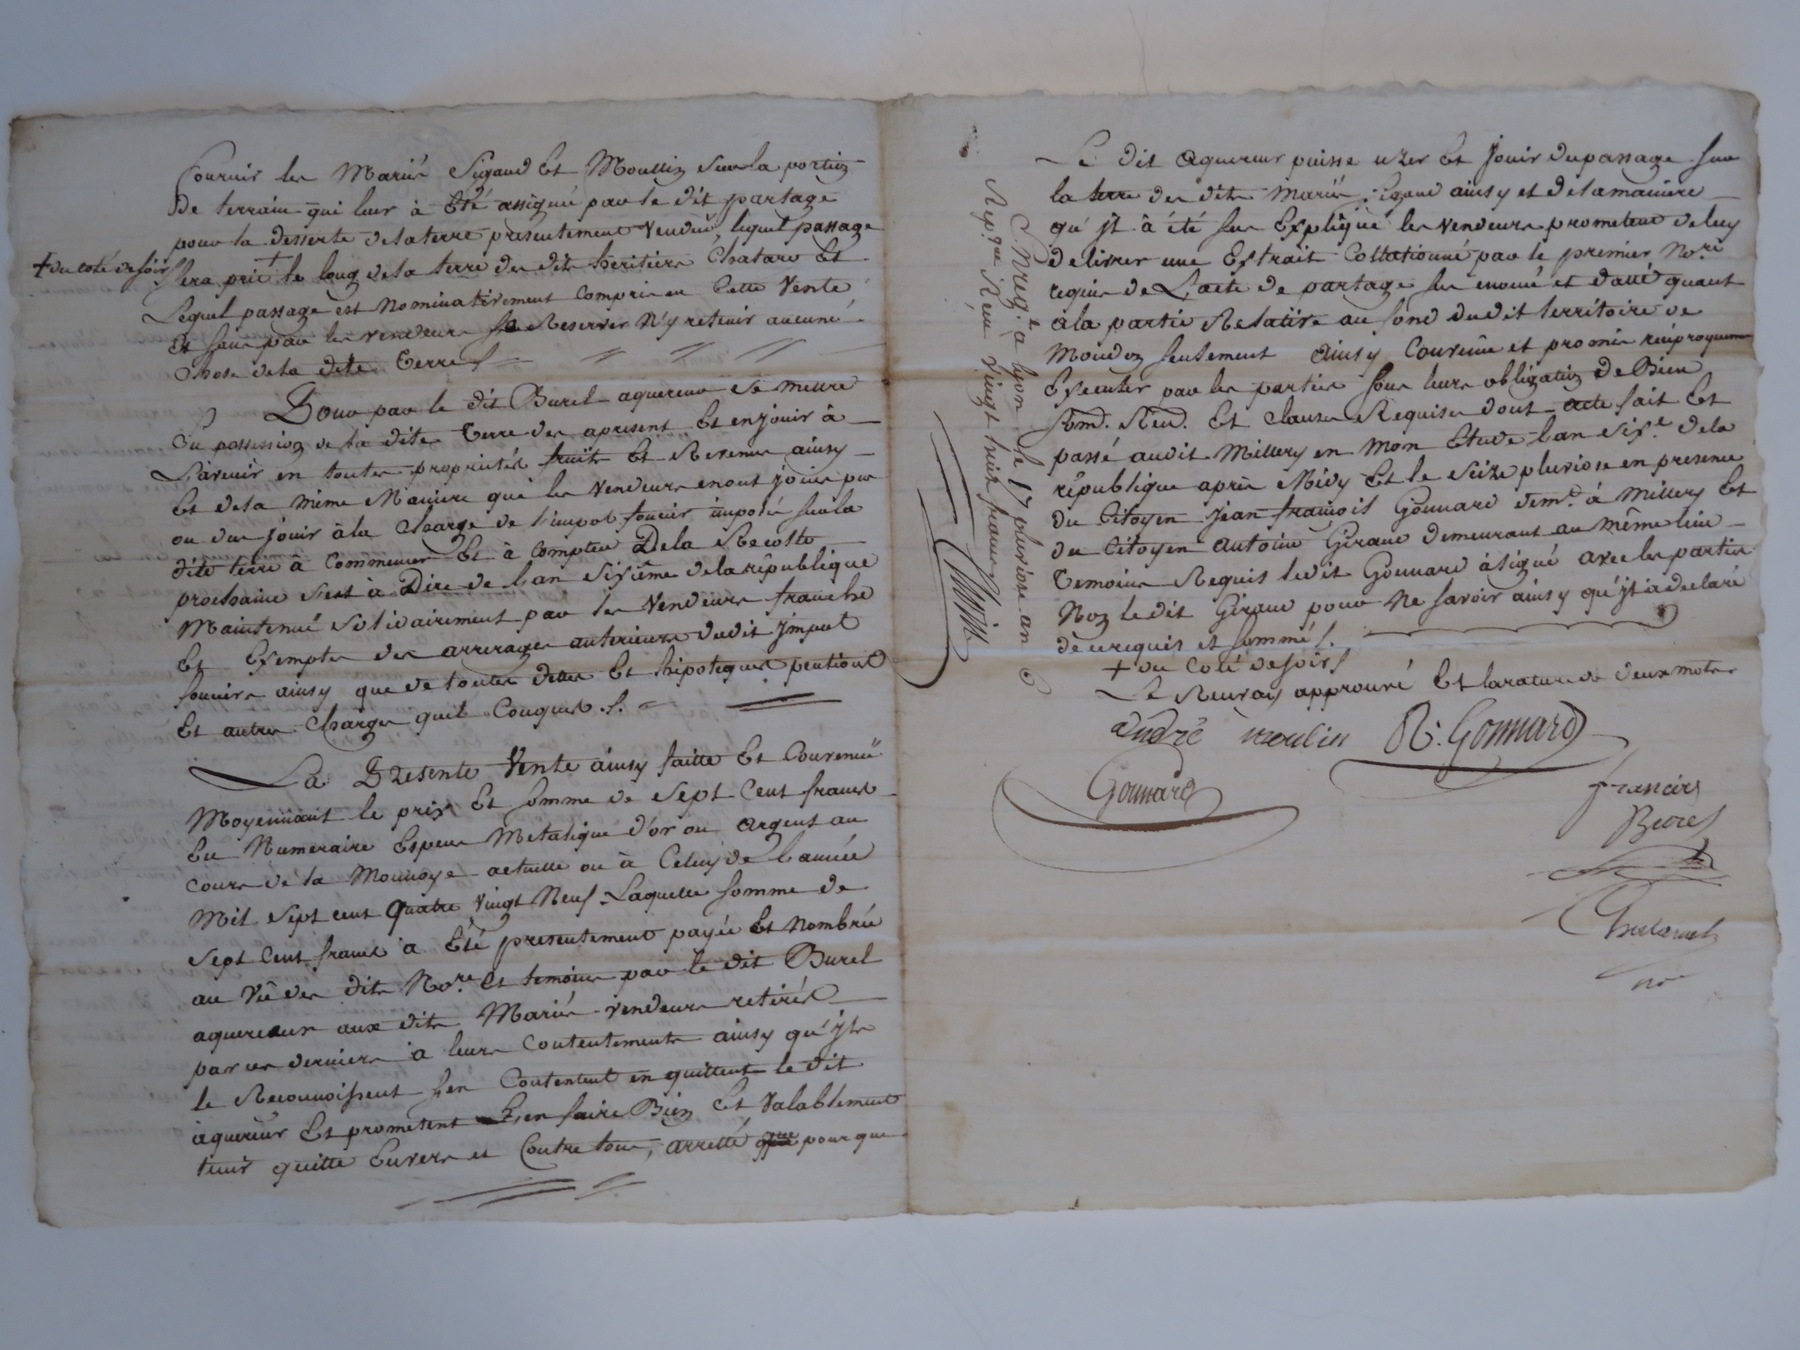 fournir les Mariés Sigaud Et Moullin sur la portion
De terrain qui leur à Eté assigné par le dit partage
pour la desserte de la terre presentement Vendüe, lequel passage
+ du coté de soir
sera pris + le long de la terre des dits heritiers Chatard Et
Lequel passage est nominativement compris en Cette Vente
Et sans par les vendeurs se Reserver N'y retenir aucune
Chose de la dite terre
Pour par le dit Burel aquereur se mettre
En possession de la dite terre des apresent Et en jouir à
L'avenir en toutes proprietés fruits Et Revenus ainsy
Et de la même Maniere que les vendeurs en ont jouis pu
ou du jouir à la Charge de l'impot foncier imposé sur la
dite terre à Commencer Et à Compter De la Recolte
prochaine C'est à Dire de Lan Sixième de la république
Maintenüe Solidairement par les Vendeurs franche
Et Exempte des arrerages anterieurs dudit Impot
foncier ainsy que de toutes dettes Et hipoteques pentions
Et autres Charges quel Conques
La Presente Vente ainsy faitte Et Convenuë
Moyennant le prix Et Somme de Sept Cent francs
En Numeraire Espece Metalique d'or ou argent au
Cours de la Monnoye actuelle ou à Celuy de l'année
Mil Sept cent quatre vingt Neuf. Laquelle Somme de
Sept Cent francs à Eté presentement payée Et Nombrée
au Vû des dits No.re Et temoins par le dit Burel
aquereur aux dits Mariés vendeurs retirés
par ces derniers à leurs Contentements ainsy qu'jls
le Reconnoissent s'en Contentent en quittent le dit
aquereur Et prometent L'en faire Bien Et Valablement
tenir quitte Envers et Contre tous, arretté que pour que
Le dit aquereur puisse uzer Et Jouir du passage sur
la terre des dits Mariés Sigaud ainsy et de la maniere
qu'jl à été sus Expliqué les Vendeurs prometent de luy
delivrer une Extrait Collationné par le premier No.re
requis de L'acte de partage sus enoncé et datté quant
à la partie Relative au fond dudit territoire de
Moudon seulement ainsy Convenu et promis réciproquement
Executer par les parties sous leurs obligation de Bien
Som. Ren. Et Clauses Requises dont acte fait Et
passé audit Millery en Mon Etude Lan Six.e de la
république après Midy Et le Seize pluviose en presence
du Citoyen Jean françois Gonnard dem.t à Millery Et
du Citoyen Antoine Giraud demeurant au Même lieu
temoins Requis ledit Gonnard à signé avec les parties
Non ledit Giraud pour Ne savoir ainsy qu'jl à declaré
de ce requis et sommé
+ du coté de soir
Le Renvoy approuvé Et la rature de deux mots
andré moulin R. Gonnard
Gonnard
francois
Burel
nore
Enreg.é à lyon le 17 pluviose an 6
Reçu vingt huit francs